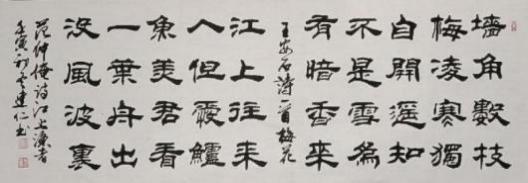 墻角數枝
梅凌寒獨
自開遥知
不是雪為
有暗香來
王安石詩一首梅花
江上往来
人但愛鱸
魚美君看
一葉舟出
没風波裏
范仲淹诗江上漁者
壬寅初建仁书